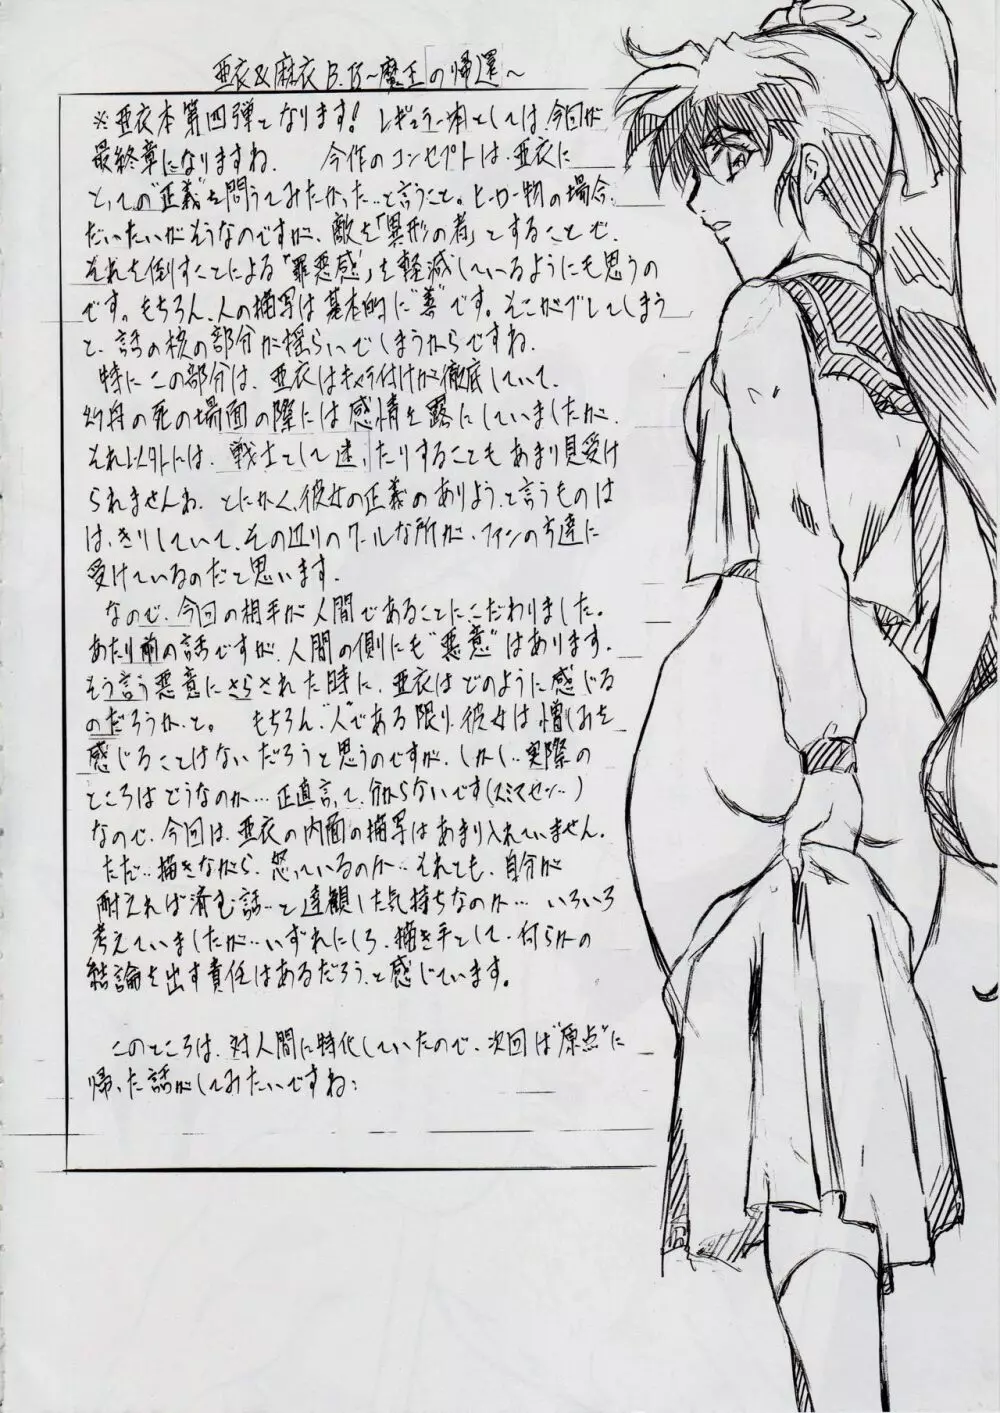 亜衣&麻衣 B.B～魔王の帰還～
※亜衣本第四弾となります! レギュラー本としては、今回が
最終章になりますね. 今作のコンセプトは、亜衣に
とっての"正義"を問うてみたかった…と言うこと。ヒーロー物の場合、
だいたいがそうなのですが、敵を「異形の者」とすることで、
それを倒すことによる"罪悪感"を軽減しているようにも思うの
です。もちろん、人の描写は基本的に"善"です。そこがブレてしまう
と、話の核の部分が揺らいでしまうからですね.
特にこの部分は、亜衣はキャラ付けが徹底していて、
幻舟の死の場面の際には感情を露にしていましたが、
それ以外には、戦士として迷ったりすることもあまり見受け
られませんね. とにかく、彼女の正義のありよう、と言うものは
はっきりしていて、その辺りのクールな所が、ファンの方達に
受けているのだと思います.
なので、今回の相手が人間であることにこだわりました。
あたり前の話ですが、人間の側にも"悪意"はあります.
そう言う悪意にさらされた時に、亜衣はどのように感じる
のだろうか、と。 もちろん、"人"である限り、彼女は憎しみを
感じることはないだろうと思うのですが、しかし…実際の
ところはどうなのか…正直言って、分からないです(スミマセン…)
なので、今回は、亜衣の内面の描写はあまり入れていません.
ただ…描きながら、怒っているのか…それとも、自分が
耐えれば済む話…と達観した気持ちなのか… いろいろ
考えていましたが…いずれにしろ、描き手として、何らかの
結論を出す責任はあるだろう、と感じています。
このところは、対人間に特化していたので、次回は"原点"に
帰った話がしてみたいですね: